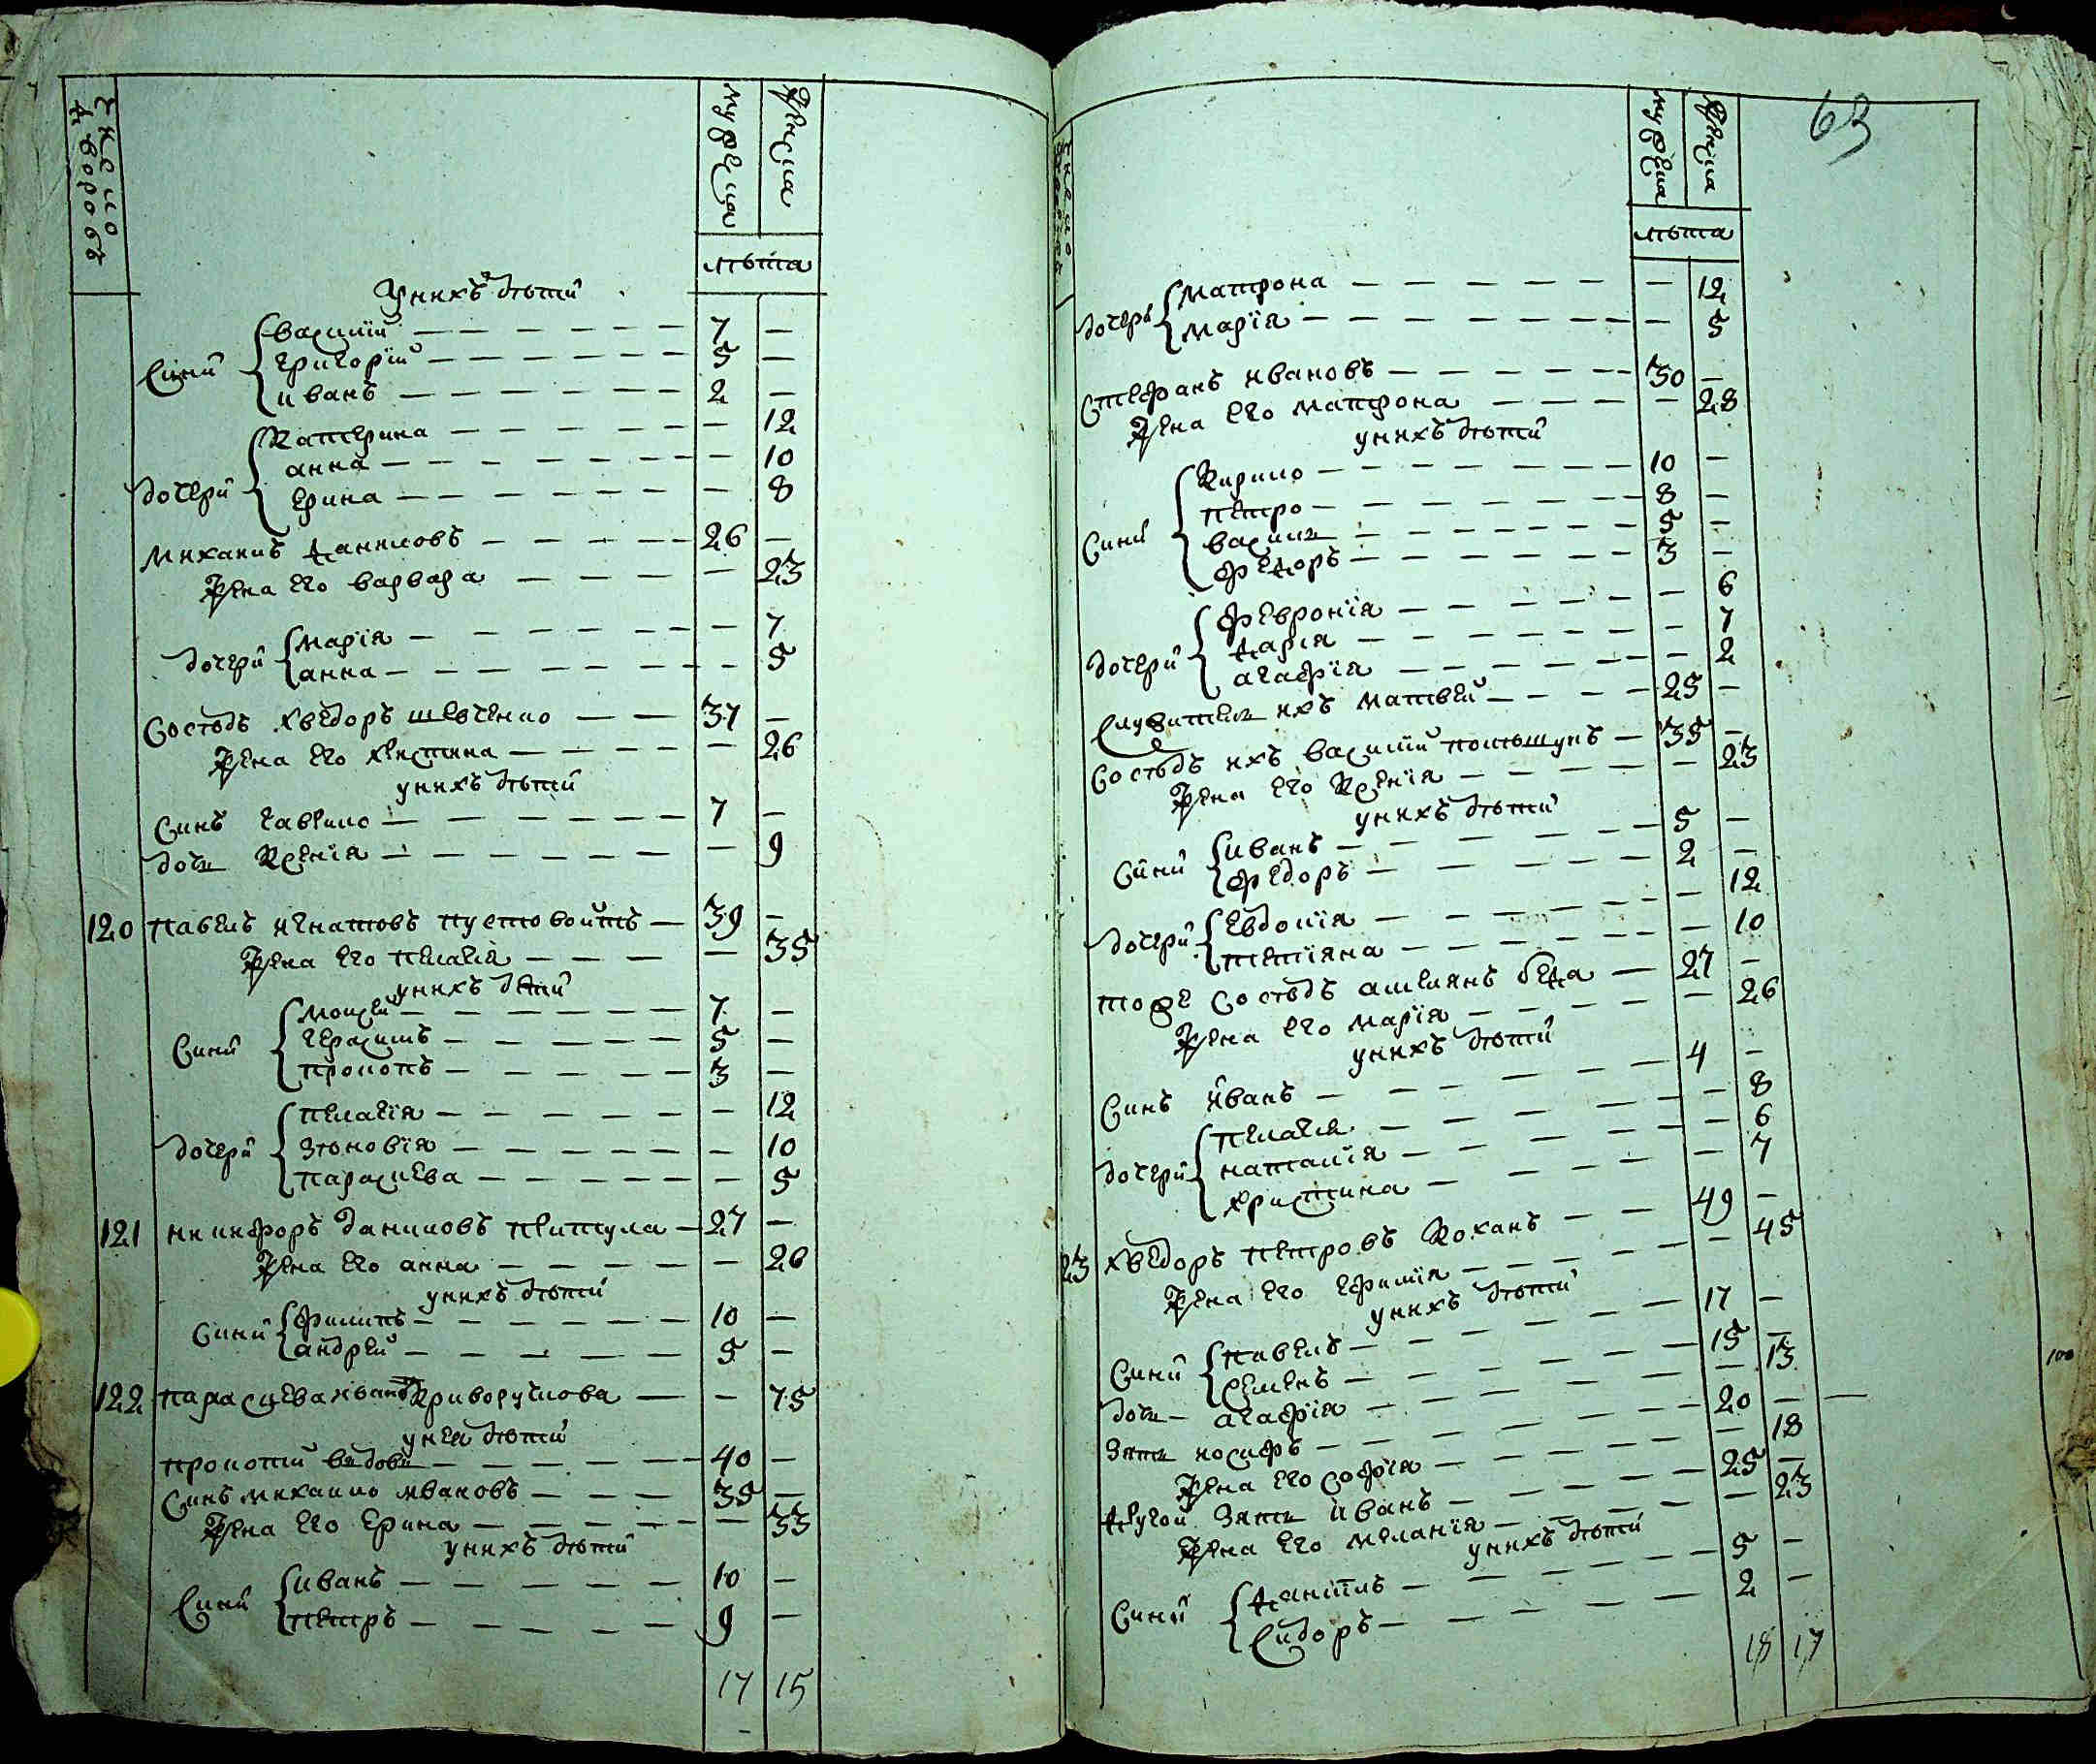 число дворовъ
мужеска
женска
лѣта
У нихъ дѣти
сини
василий — 7 —
григорий — 5 —
иванъ — 2 —
дочери
катерина — — 12
анна — — 10
ерина — — 8
михаилъ даниловъ — 26 —
жена его варвара — — 23
дочери
мария — — 7
анна — — 5
сосѣдъ хведоръ шевченко — 37 —
жена его христина — — 26
у нихъ дѣти
синъ гаврило — 7 —
дочь ксения — — 9
120 павелъ игнатовъ пустовойтъ — 39 —
жена его пелагия — — 35
у нихъ дѣти
сини
моисей — 7 —
герасимъ — 5 —
прокопъ — 3 —
дочери
пелагія — — 12
зѣновія — — 10
параскева — — 5
121 никифоръ даниловъ — 27 —
жена его анна — — 26
у нихъ дѣти
сини
филипъ — 10 —
андрей — 5 —
122 параскева иванова криворучкова — — 75
у нея дѣти
прокопий — 40 —
синъ михайло ивановъ — 35 —
жена его ерина — — 33
у нихъ дѣти
сини
иванъ — 10 —
петръ — 9 —
17 15
63
число
мужеска
женска
лѣта
дочери
матрона — — 12
марія — — 5
стефанъ ивановъ — 30 —
жена его матрона — — 28
у нихъ дѣти
сини
кирило — 10 —
петро — 8 —
василь — 5 —
федоръ — 3 —
дочери
феврония — — 6
дарія — — 7
агафія — — 2
служитель ихъ матвей — 25 —
сосѣдъ ихъ василий — 35 —
жена его ксенія — — 23
у нихъ дѣти
сини
иванъ — 5 —
федоръ — 2 —
дочери
евдокія — — 12
тетіяна — — 10
тоже сосѣдъ амелянъ беда — 27 —
жена его марія — — 26
у нихъ дѣти
синъ иванъ — 4 —
дочери
пелагия — — 8
наталія — — 6
христина — — 7
23 хведоръ петровъ коханъ — 49 —
жена его ефимія — — 45
у нихъ дѣти
сини
павелъ — 17 —
семенъ — 15 —
дочь — агафія — — 13
зять иосифъ — 20 —
жена его софія — — 18
другой зять иванъ — 25 —
жена его меланія — — 23
у нихъ дѣти
сини
данїилъ — 5 —
сидоръ — 2 —
18 17
100